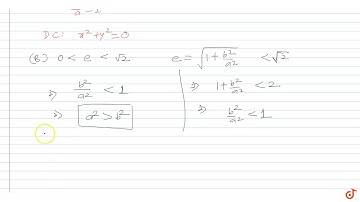 a - 1
D.C: x² + y² = 0
(B) 0 < e < √2 e = √(1 + b²/a²) < √2
⇒ b²/a² < 1 ⇒ 1 + b²/a² < 2
⇒ a² > b² ⇒ b²/a² < 1